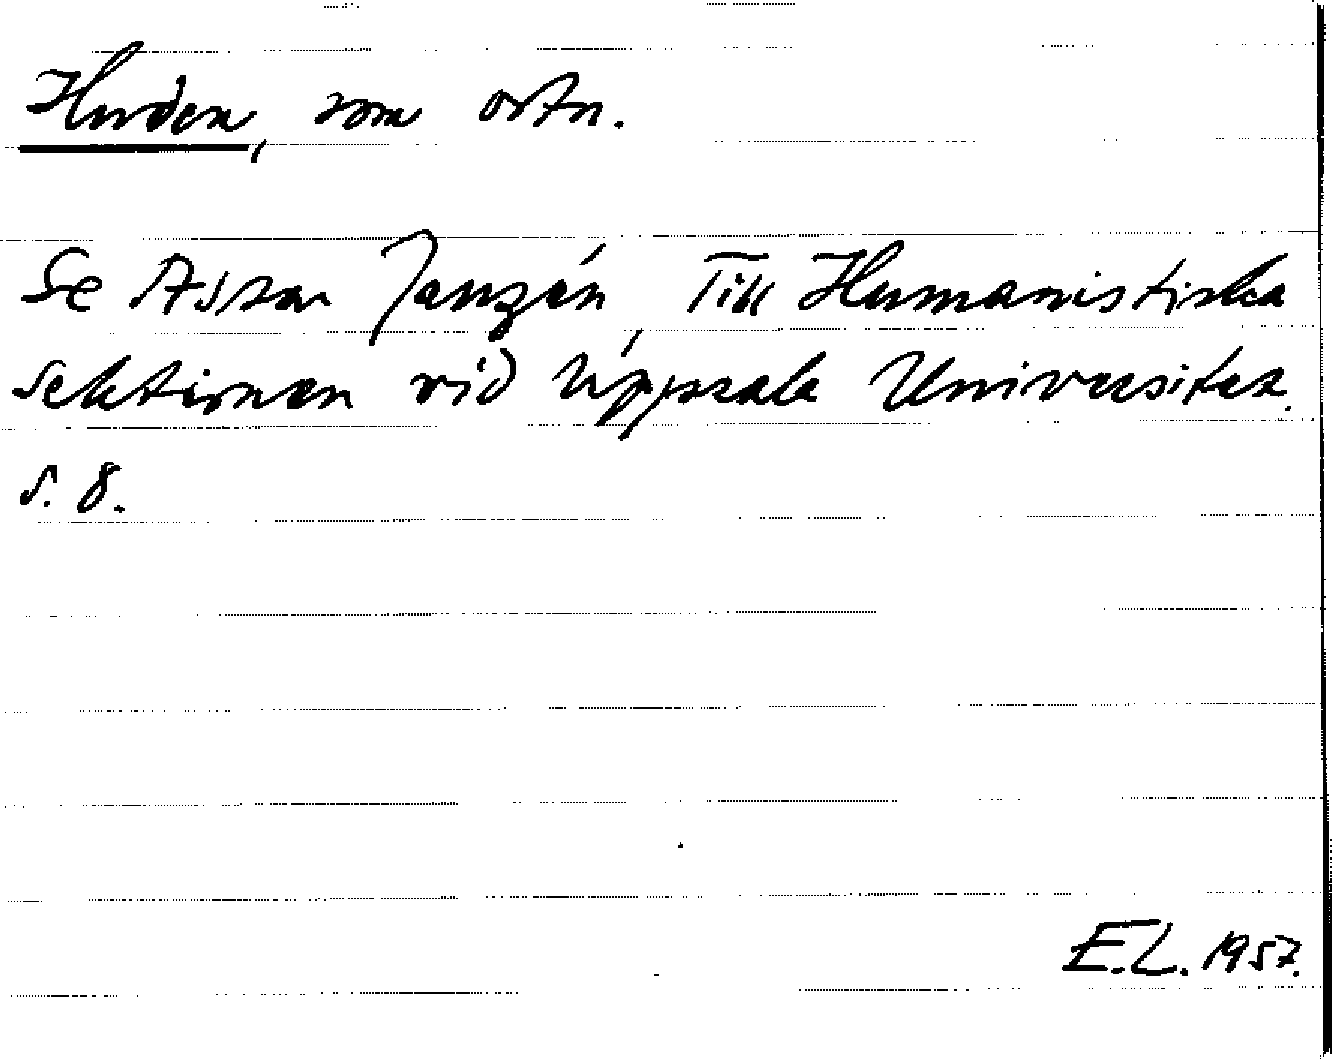 Hurden, som ortn.
Se Assar Janzén, Till Humanistiska
Sektionen vid Uppsala Universitet.
s. 8.
E.L. 1957.